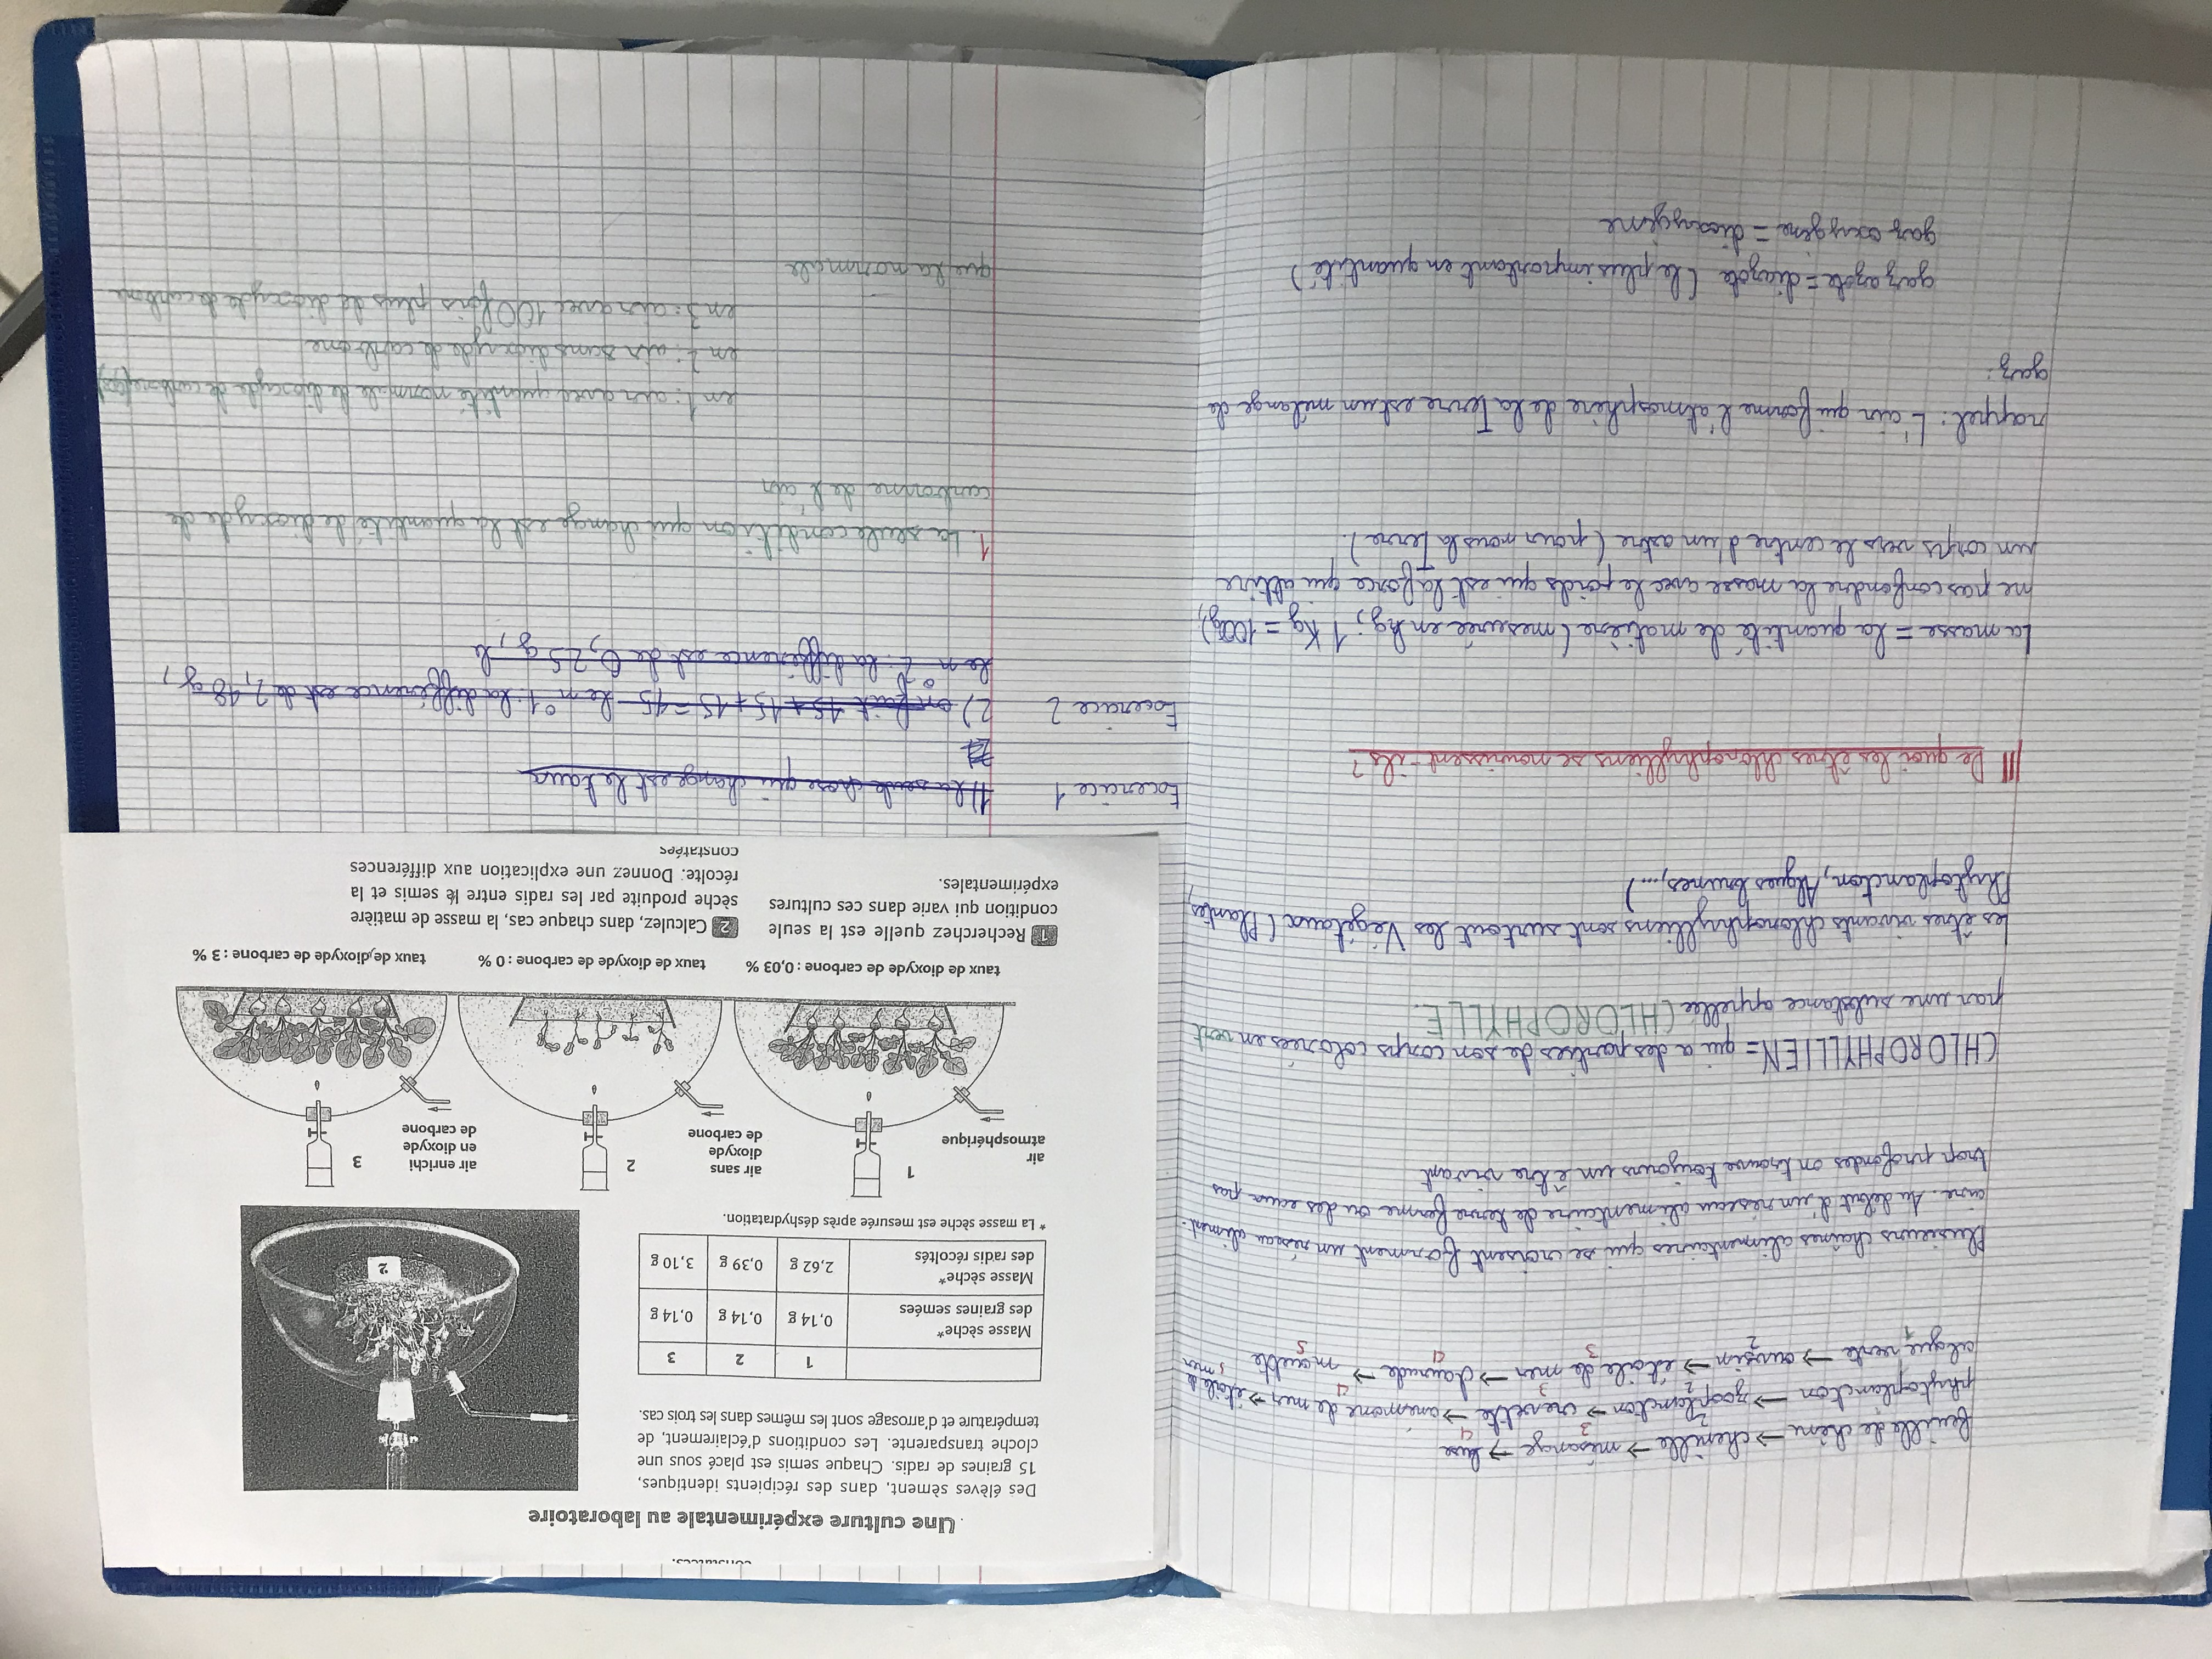 feuille de chêne → chenille → mésange → buse
2 3 4
phytoplancton → zooplancton → crevette → anémone de mer → étoile de mer
2 3 4 5
algue verte → oursin → étoile de mer → daurade → mouette
1 2 3 4 5
Plusieurs chaînes alimentaires qui se croisent forment un réseau aliment-
aire. Au début d'un réseau alimentaire de terre ferme ou des eaux pas
trop profondes on trouve toujours un être vivant
CHLOROPHYLLIEN = qui a des parties de son corps colorées en vert
par une substance appellée CHLOROPHYLLE.
Les êtres vivants chlorophylliens sont surtout les Végétaux (Plantes,
Phytoplancton, Algues brunes,...)
III De quoi les êtres chlorophylliens se nourissent-ils?
La masse = la quantité de matière (mesurée en kg; 1 Kg = 1000g),
ne pas confondre la masse avec le poids qui est la force qui attire
un corps vers le centre d'un astre (pour nous la Terre).
rappel: L'air qui forme l'atmosphère de la Terre est un mélange de
gaz:
gaz azote = diazote (le plus important en quantité)
gaz oxygène = dioxygène
constatées.
Une culture expérimentale au laboratoire
Des élèves sèment, dans des récipients identiques,
15 graines de radis. Chaque semis est placé sous une
cloche transparente. Les conditions d'éclairement, de
température et d'arrosage sont les mêmes dans les trois cas.
1 2 3
Masse sèche*
des graines semées 0,14 g 0,14 g 0,14 g
Masse sèche*
des radis récoltés 2,62 g 0,39 g 3,10 g
* La masse sèche est mesurée après déshydratation.
2
air
atmosphérique
1
air sans
dioxyde
de carbone
2
air enrichi
en dioxyde
de carbone
3
taux de dioxyde de carbone : 0,03 %
taux de dioxyde de carbone : 0 %
taux de dioxyde de carbone : 3 %
1 Recherchez quelle est la seule
condition qui varie dans ces cultures
expérimentales.
2 Calculez, dans chaque cas, la masse de matière
sèche produite par les radis entre le semis et la
récolte. Donnez une explication aux différences
constatées
Exercice 1 1) la seule chose qui change est le taux
Exercice 2 2) on fait 15+15+15=45 le n°1: la différence est de 2,48 g,
le n°2: la différence est de 0,25 g, le
1. La seule condition qui change est la quantité de dioxyde de
carbonne de l'air
en 1: air avec quantité normale de dioxyde de carbone
en 2: air sans dioxyde de carbone
en 3: air avec 100 fois plus de dioxyde de carbone
que la normale